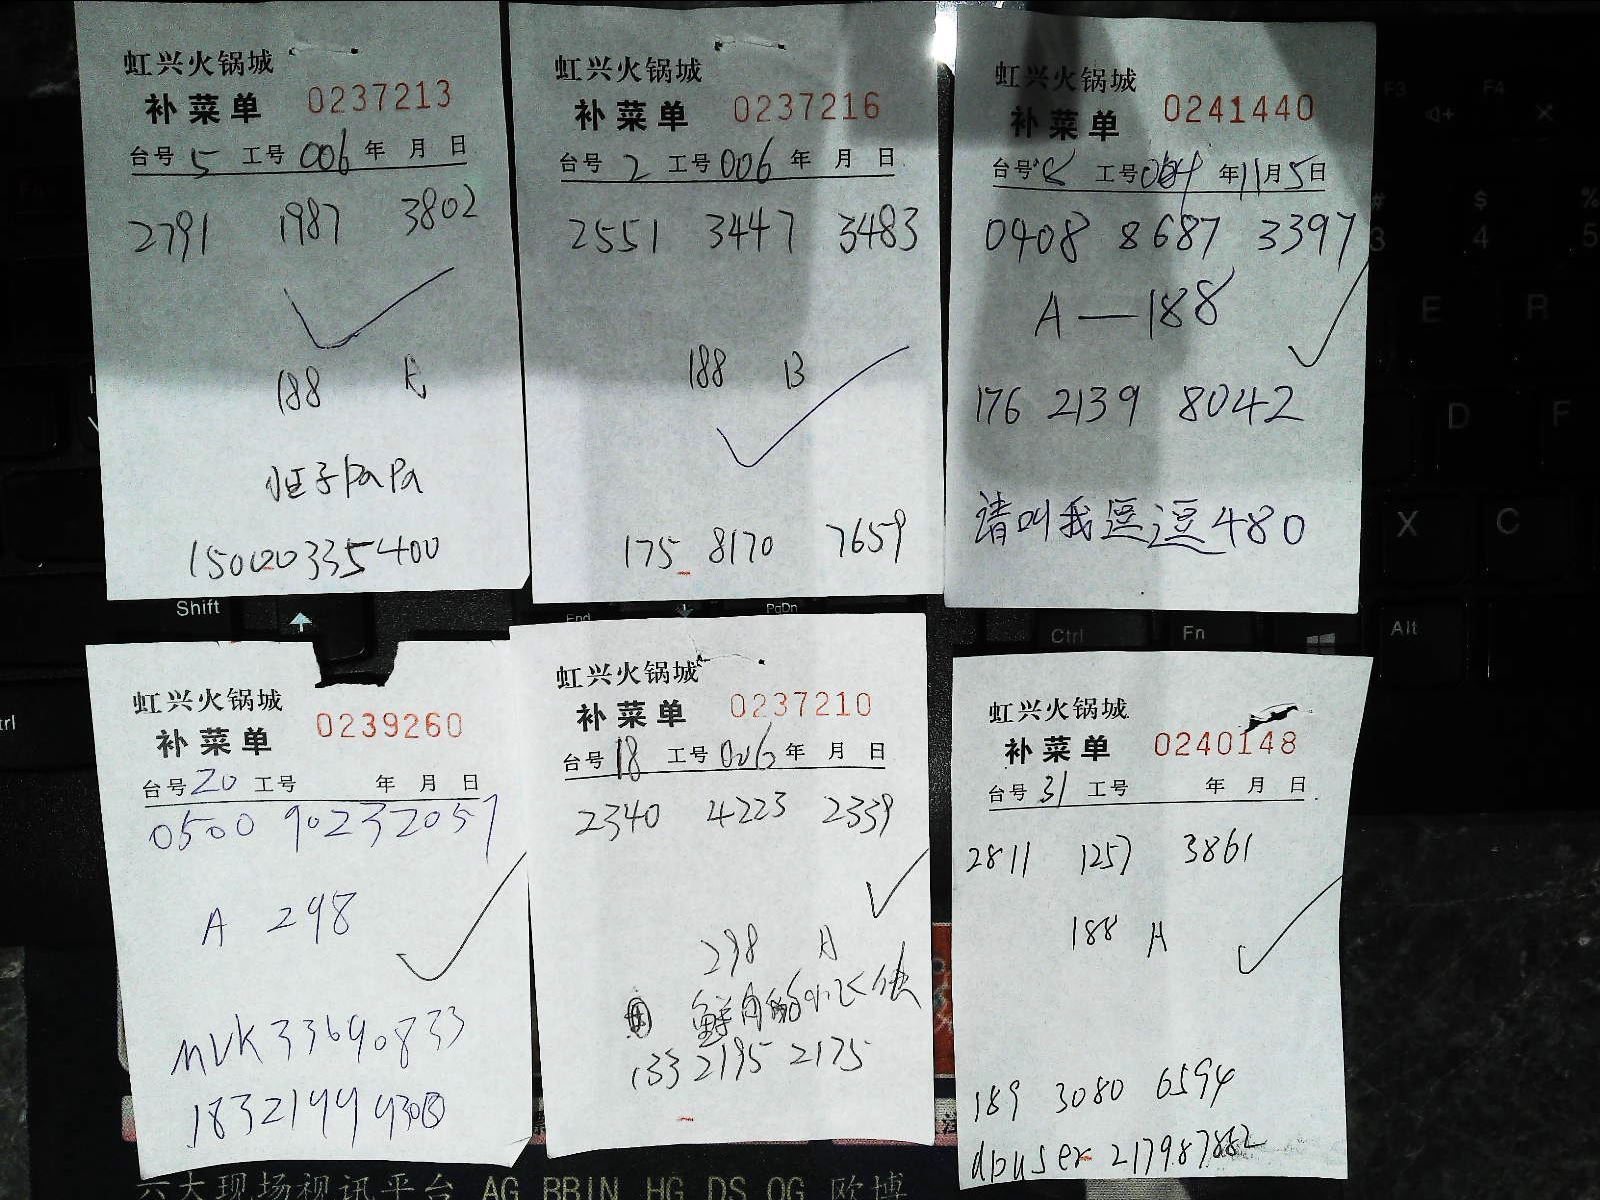 虹兴火锅城
补菜单 0237213
台号 5 工号 006 年 月 日
2791 1987 3802
188
子PaPa
15000335400
虹兴火锅城
补菜单 0237216
台号 2 工号 006 年 月 日
2551 3447 3483
188 B
175 8170 7659
虹兴火锅城
补菜单 0241440
台号 工号 年 11月5日
0408 8687 3397
A—188
176 2139 8042
请叫我逗逗480
虹兴火锅城
补菜单 0239260
台号 20 工号 年 月 日
0500 90232057
A 298
MVK33690833
虹兴火锅城
补菜单 0237210
台号 18 工号 006 年 月 日
2340 4223 2339
298 A
133 2195 2175
虹兴火锅城
补菜单 0240148
台号 31 工号 年 月 日
2811 1257 3861
188 A
189 3080 6594
dpuser 217987882
Shift
End
PgDn
Ctrl
Fn
Alt
F3
F4
#
3
$
4
%
5
E
R
D
F
X
C
六大现场视讯平台 AG BBIN HG DS OG 欧博